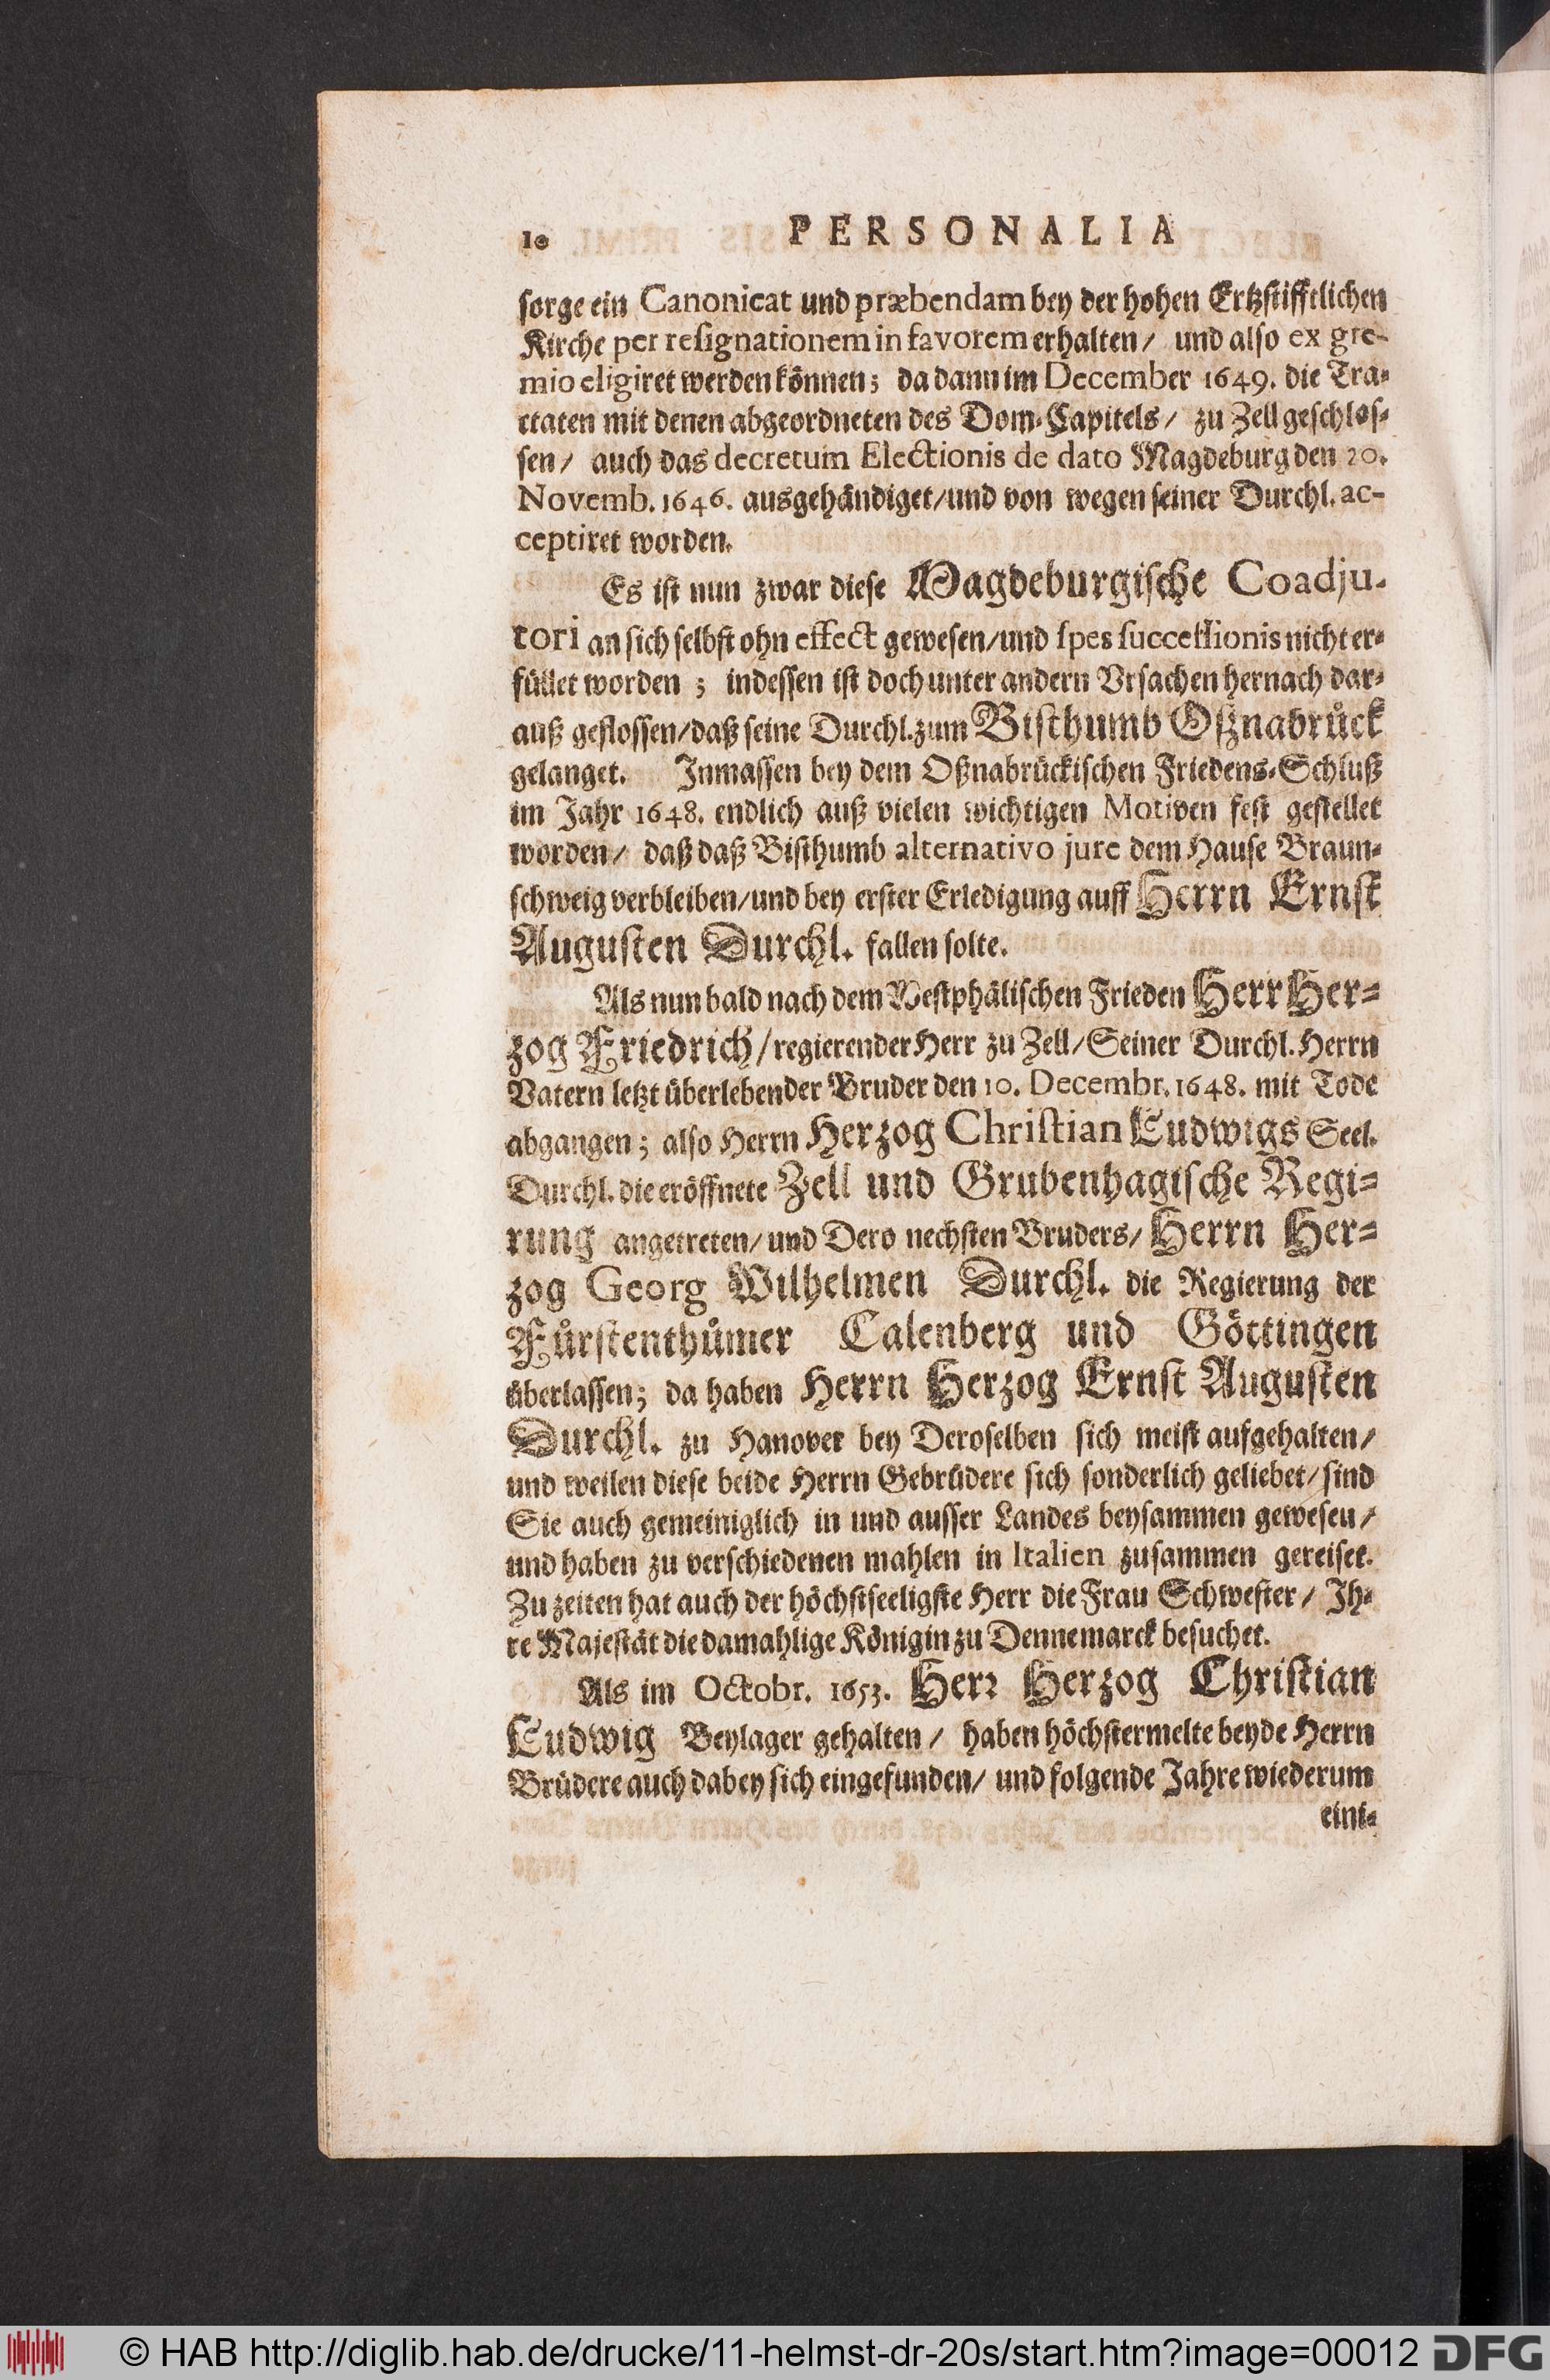 10 PERSONALIA
sorge ein Canonicat und præbendam bey der hohen Ertzstifftlichen
Kirche per resignationem in favorem erhalten/ und also ex gre-
mio eligiret werden können; da dann im December 1649. die Tra-
ctaten mit denen abgeordneten des Dom-Capitels/ zu Zell geschlos-
sen/ auch das decretum Electionis de dato Magdeburg den 20.
Novemb. 1646. ausgehändiget/und von wegen seiner Durchl. ac-
ceptiret worden.
Es ist nun zwar diese Magdeburgische Coadju-
tori an sich selbst ohn effect gewesen/und spes successionis nicht er-
füllet worden ; indessen ist doch unter andern Vrsachen hernach dar-
auß geflossen/daß seine Durchl. zum Bisthumb Oßnabrück
gelanget. Inmassen bey dem Oßnabrückischen Friedens-Schluß
im Jahr 1648. endlich auß vielen wichtigen Motiven fest gestellet
worden/ daß daß Bisthumb alternativo jure dem Hause Braun-
schweig verbleiben/und bey erster Erledigung auff Herrn Ernst
Augusten Durchl. fallen solte.
Als nun bald nach dem Westphälischen Frieden Herr Her-
zog Friedrich/regierender Herr zu Zell/Seiner Durchl. Herrn
Vatern letzt überlebender Bruder den 10. Decembr. 1648. mit Tode
abgangen; also Herrn Herzog Christian Ludwigs Seel.
Durchl. die eröffnete Zell und Grubenhagische Regi-
rung angetreten/und Dero nechsten Bruders/ Herrn Her-
zog Georg Wilhelmen Durchl. die Regierung der
Fürstenthümer Calenberg und Göttingen
überlassen; da haben Herrn Herzog Ernst Augusten
Durchl. zu Hanover bey Deroselben sich meist aufgehalten/
und weilen diese beide Herrn Gebrüdere sich sonderlich geliebet/sind
Sie auch gemeiniglich in und ausser Landes beysammen gewesen/
und haben zu verschiedenen mahlen in Italien zusammen gereiset.
Zu zeiten hat auch der höchstseeligste Herr die Frau Schwester/ Ih-
re Majestät die damahlige Königin zu Dennemarck besuchet.
Als im Octobr. 1653. Herr Herzog Christian
Ludwig Beylager gehalten/ haben höchstermelte beyde Herrn
Brüdere auch dabey sich eingefunden/ und folgende Jahre wiederum
eini-
© HAB http://diglib.hab.de/drucke/11-helmst-dr-20s/start.htm?image=00012 DFG